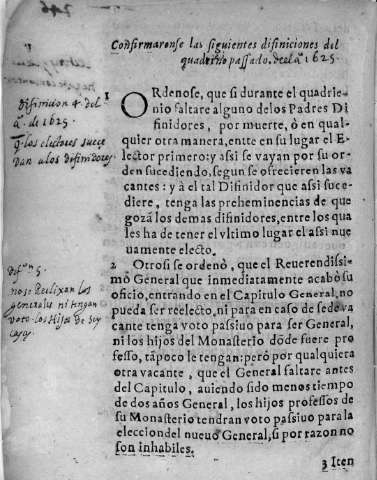 246
Confirmaronse las siguientes difiniciones del
quaderno passado. de el aº. 1625.
1
ORdenose, que si durante el quadrie-
nio faltare alguno delos Padres Di
finidores, por muerte, ò en qual-
quier otra manera, entre en su lugar el E-
lector primero: y assi se vayan por su or-
den sucediendo, segun se ofrecieren las va
cantes: y à el tal Difinidor que assi suce-
diere, tenga las preheminencias de que
gozã los demas difinidores, entre los qua
les ha de tener el vltimo lugar el assi nue
uamente electo.
2 Otrosi se ordenò, que el Reuerendissi-
mo General que inmediatamente acabò su
oficio, entrando en el Capitulo General, no
pueda ser reelecto, ni para en caso de sede va
cante tenga voto passiuo para ser General,
ni los hijos del Monasterio dõde fuere pro
fesso, tãpoco le tengan: però por qualquiera
otra vacante, que el General faltare antes
del Capitulo, auiendo sido menos tiempo
de dos años General, los hijos professos de
su Monasterio tendran voto passiuo para la
eleccion del nueuo General, si por razon no
son inhabiles.
3 Iten
difinicion 4. del
aº. de 1625.
q. los electores suce
dan a los difinidores
difon. 5.
no se Relixan los
generales ni tengan
voto los Hijos de Su
casa